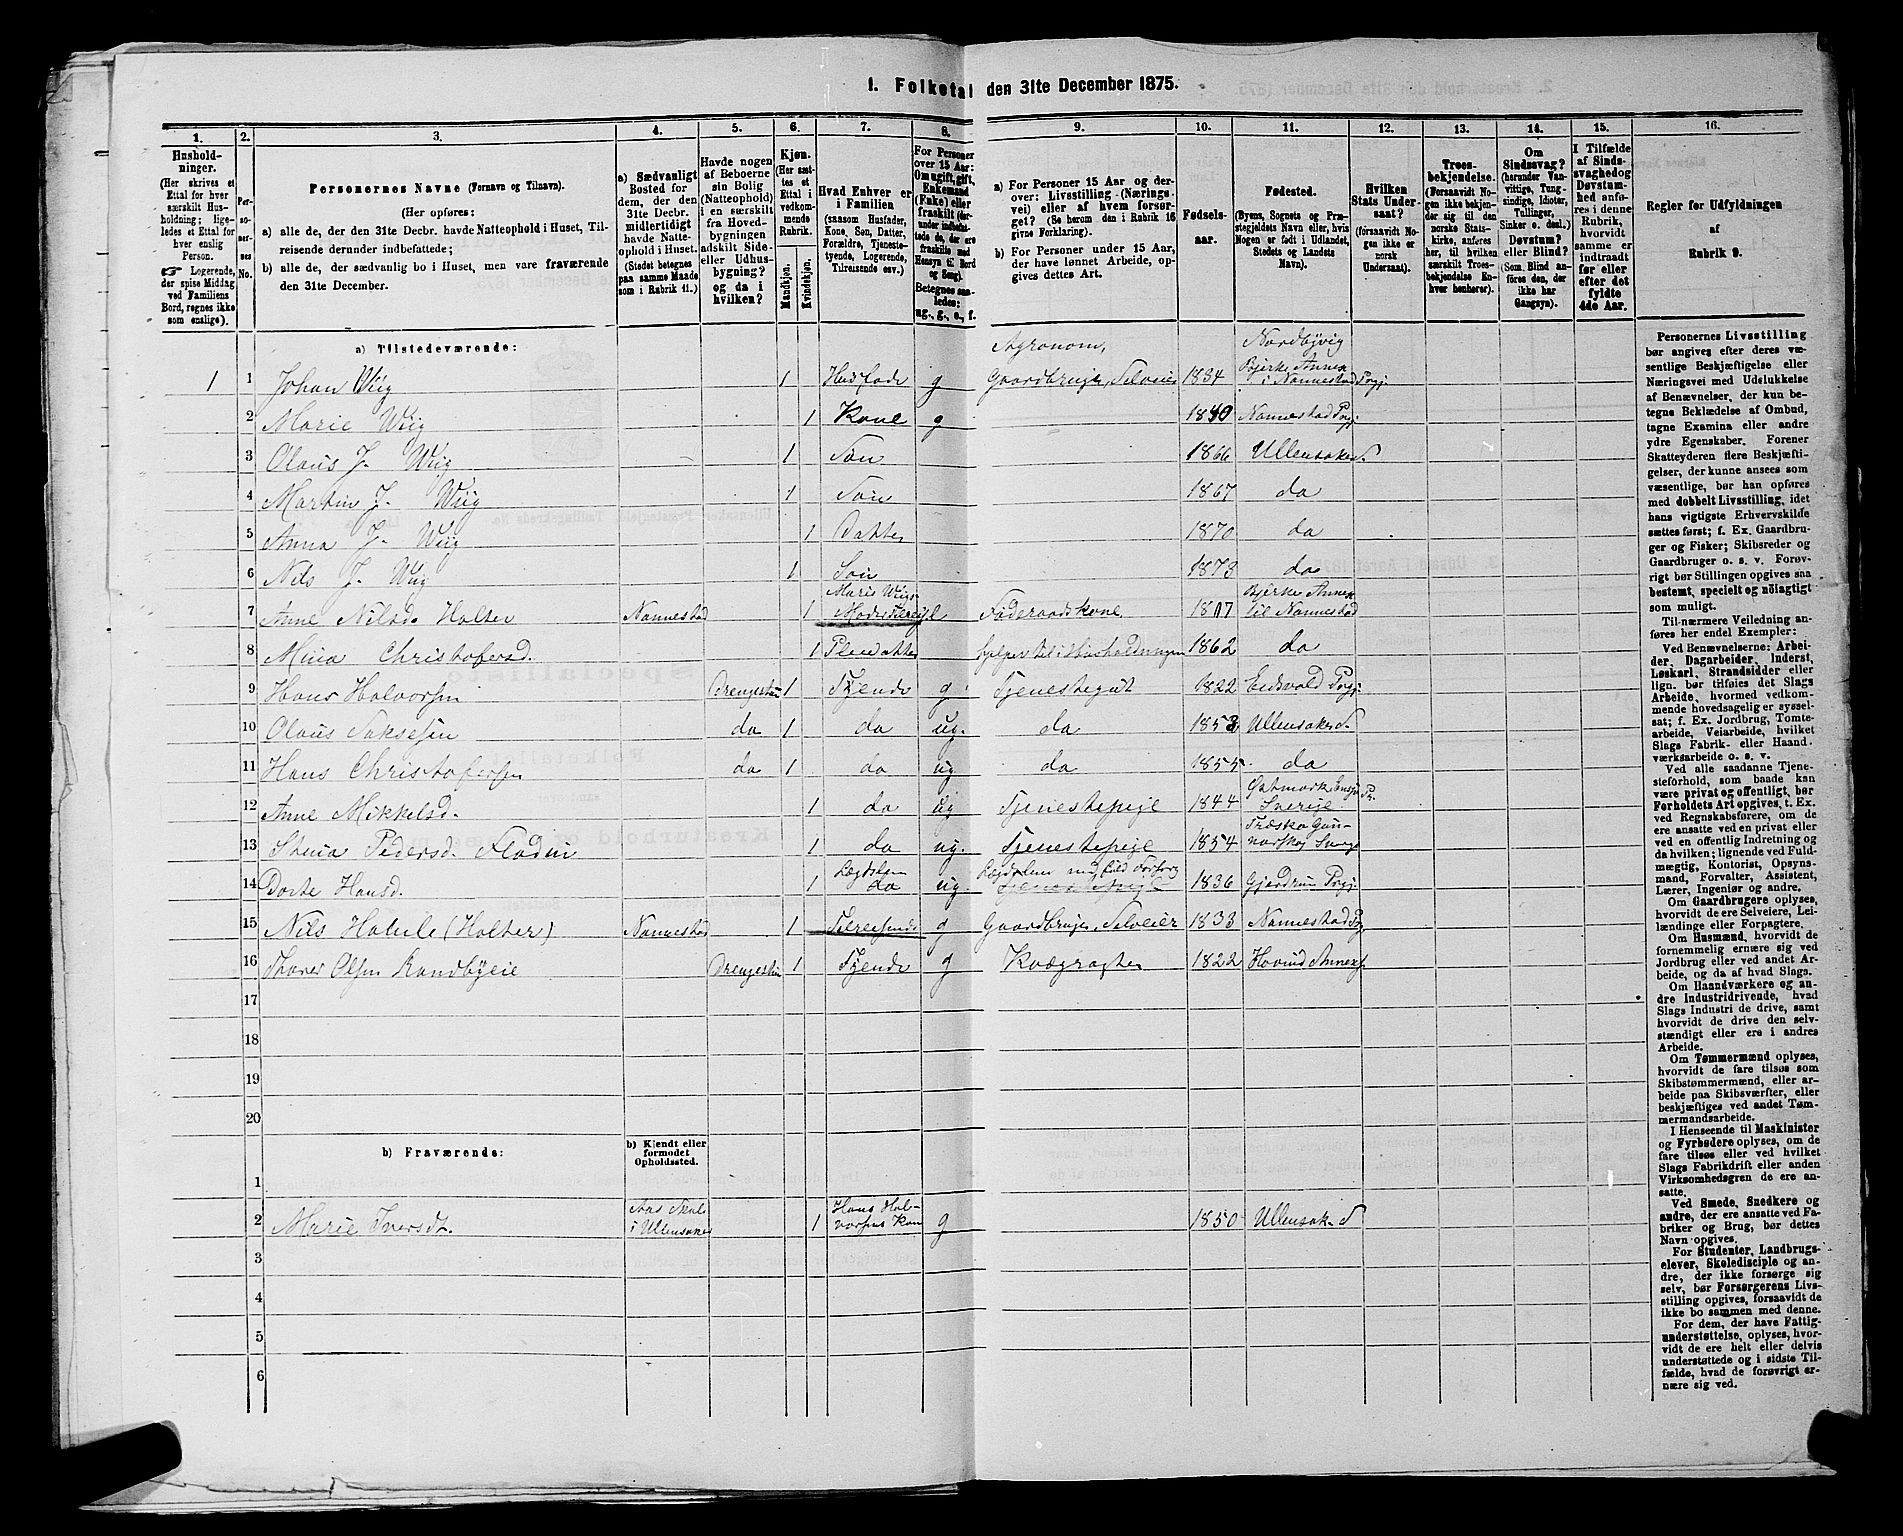 1. Folketal den 31te December 1875.
1. 2. 3. 4. 5. 6. 7. 8. 9. 10. 11. 12. 13. 14. 15. 16.
Hushold-
ninger.
(Her skrives et
Ettal for hver
særskilt Hus-
holdning; lige-
ledes et Ettal for
hver enslig
Person.
☞ Logerende,
der spise Middag
ved Familiens
Bord, regnes ikke
som enslige).
Per-
so-
ner-
nes
No.
Personernes Navne (Fornavn og Tilnavn).
(Her opføres:
a) alle de, der den 31te Decbr. havde Natteophold i Huset, Til-
reisende derunder indbefattede;
b) alle de, der sædvanlig bo i Huset, men vare fraværende
den 31te December.
a) Sædvanligt
Bosted for
dem, der den
31te Decbr.
midlertidigt
havde Natte-
ophold i Huset.
(Stedet betegnes
paa samme Maade
som i Rubrik 11.)
Havde nogen
af Beboerne
sin Bolig
(Natteophold)
i en særskilt
fra Hoved-
bygningen
adskilt Side-
eller Udhus-
bygning?
og da i
hvilken?
Kjøn.
(Her sæt-
tes et
Ettal i
vedkom-
mende
Rubrik.
Mandkjøn.
Kvindekjøn.
Hvad Enhver er
i Familien
(saasom Husfader,
Kone, Søn, Datter,
Forældre, Tjeneste-
tyende, Logerende,
Tilreisende osv.)
For Personer
over 15 Aar:
Om ugift, gift,
Enkemand
(Enke) eller
fraskilt (der-
under indbefat-
tede de, der ere
fraskilte med
Hensyn til Bord
og Seng).
Betegnes saa-
ledes:
ug., g., e., f.
a) For Personer 15 Aar og der-
over: Livsstilling (Nærings-
vei) eller af hvem forsør-
get? (Se herom den i Rubrik 16
givne Forklaring).
b) For Personer under 15 Aar,
der have lønnet Arbeide, op-
gives dettes Art.
Fødsels-
aar.
Fødested.
(Byens, Sognets og Præ-
stegjeldets Navn eller, hvis
Nogen er født i Udlandet,
Stedets og Landets
Navn).
Hvilken
Stats Under-
saat?
(forsaavidt No-
gen ikke er
norsk
Undersaat).
Troes-
bekjendelse.
(Forsaavidt No-
gen ikke bekjen-
der sig til den
norske Stats-
kirke, anføres
her, til hvilken
særskilt Troes-
bekjendelse En-
hver henhører).
Om
Sindssvag?
(herunder Van-
vittige, Tung-
sindige, Idioter,
Tullinger,
Sinker o. desl.)
Døvstum?
eller Blind?
(Som Blind an-
føres den, der
ikke har
Gangsyn).
I Tilfælde
af Sinds-
svaghed og
Døvstum-
hed anfø-
res i denne
Rubrik,
hvorvidt
samme er
indtraadt
før eller
efter det
fyldte
4de Aar.
Regler for Udfyldningen
af
Rubrik 9.
a) Tilstedeværende:
1 1 Johan Wiig 1 Husfader g Agronom, Gaardbruger, Selveier 1834 Nordbyvig Bjerke Annex i Nannestad Prgj.
2 Marie Wiig 1 Kone g 1840 Nannestad Prgj.
3 Olaus J. Wiig 1 Søn 1866 Ullensaker S.
4 Martin J. Wiig 1 Søn 1867 do
5 Anna J. Wiig 1 Datter 1870 do
6 Nils J. Wiig 1 Søn 1873 do
7 Anne Nilsd. Holter Nannestad 1 Marie Wiigs Moder Føderaadskone 1817 Bjerke Annex til Nannestad
8 Mina Christofersd. 1 Pleiedatter hjælper til i Husholdningen 1862 do
9 Hans Halvorsen Drengestue 1 Tjener g Tjenestegut 1822 Eidsvold Prgj.
10 Olaus Saksesen do 1 do ug. do 1853 Ullensaker S.
11 Hans Christofersen do 1 do ug do 1855 do
12 Anne Mikkelsd. 1 do ug Tjenestepige 1844 Sverige
13 Stina Pedersd. Flodin 1 do ug. Tjenestepige 1854
14 Dorte Hansd. 1 Lægdslem do ug. Lægdslem med fuld Forsørg Tjenestepige 1836 Gjerdrum Prgj.
15 Nils Holter (Holter) Nannestad 1 Tilreisende g Gaardbruger, Selveier 1833 Nannestad Prg
16 Thorer Olsen Randbyeie Drengestue 1 Tjener g Kvægrøgter 1822 Hovind Annex
17
18
19
20
b) Fraværende:
b) Kjendt eller
formodet
Opholdssted.
1
2 Marie Iversdt. Aas Skole i Ullensaker 1 Hans Hal-
vorsens Kone g 1850 Ullensaker S
3
4
5
6
Personernes Livsstilling
bør angives efter deres væ-
sentlige Beskjæftigelse eller
Næringsvei med Udelukkelse
af Benævnelser, der kun be-
tegne Beklædelse af Ombud,
tagne Examina eller andre
ydre Egenskaber. Forener
Skatteyderen flere Beskjæfti-
gelser, der kunne ansees som
væsentlige, bør han opføres
med dobbelt Livsstilling, idet
hans vigtigste Erhvervskilde
sættes først; f. Ex. Gaardbru-
ger og Fisker; Skibsreder og
Gaardbruger o. s. v. Forøv-
rigt bør Stillingen opgives saa
bestemt, specielt og nøiagtigt
som muligt.
Til nærmere Veiledning an-
føres her endel Exempler:
Ved Benævnelserne: Arbei-
der, Dagarbeider, Inderst,
Løskarl, Strandsidder eller
lign. bør tilføies det Slags
Arbeide, hvormed vedkom-
mende hovedsagelig er syssel-
sat; f. Ex. Jordbrug, Tomte-
arbeide, Veiarbeide, hvilket
Slags Fabrik- eller Haand-
værksarbeide o. s. v.
Ved alle saadanne Tjene-
steforhold, som baade kan
være privat og offentligt, bør
Forholdets Art opgives, t. Ex.
ved Regnskabsførere, om de
ere ansatte ved en privat eller
ved en offentlig Indretning og
da hvilken; lignende ved Fuld-
mægtig, Kontorist, Opsyns-
mand, Forvalter, Assistent,
Lærer, Ingeniør og andre.
Om Gaardbrugere oplyses,
hvorvidt de ere Selveiere, Lei-
lændinge eller Forpagtere.
Om Husmænd, hvorvidt de
fornemmelig ernære sig ved
Jordbrug eller ved andet Ar-
beide, og da af hvad Slags.
Om Haandværkere og an-
dre Industridrivende, hvad
Slags Industri de drive, samt
hvorvidt de drive den selv-
stændigt eller ere i andres
Arbeide.
Om Tømmermænd oplyses,
hvorvidt de fare tilsøs som
Skibstømmermænd, eller ar-
beide paa Skibsværfter, eller
beskjæftiges ved andet Tøm-
mermandsarbeide.
I Henseende til Maskinister
og Fyrbødere oplyses, om de
fare tilsøs eller ved hvilket
Slags Fabrikdrift eller anden
Virksomhedsgren de ere an-
satte.
Ved Smede, Snedkere og
andre, der ere ansatte ved Fa-
briker og Brug, bør dettes
Navn opgives.
For Studenter, Landbrugs-
elever, Skoledisciple og an-
dre, der ikke forsørge sig
selv, bør Forsørgerens Livs-
stilling opgives, forsaavidt de
ikke bo sammen med denne.
For dem, der have Fattig-
understøttelse, oplyses, hvor-
vidt de ere helt eller delvis
understøttede og i sidste Til-
fælde, hvad de forøvrigt er-
nære sig ved.